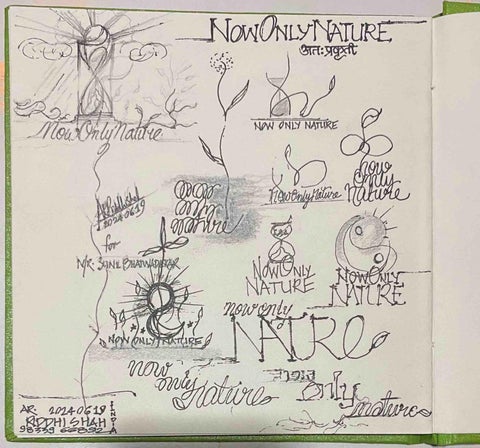 NOW ONLY NATURE
अतः प्रकृती
Now Only Nature
NOW ONLY NATURE
now
only
nature
Now Only Nature
2024 06 19
for
NOW ONLY
NATURE
NOW ONLY
NATURE
NOW ONLY NATURE
now only
NATURE
now
only
nature
only
nature
AR. 2024 06 19
RIDDHI SHAH
INDIA